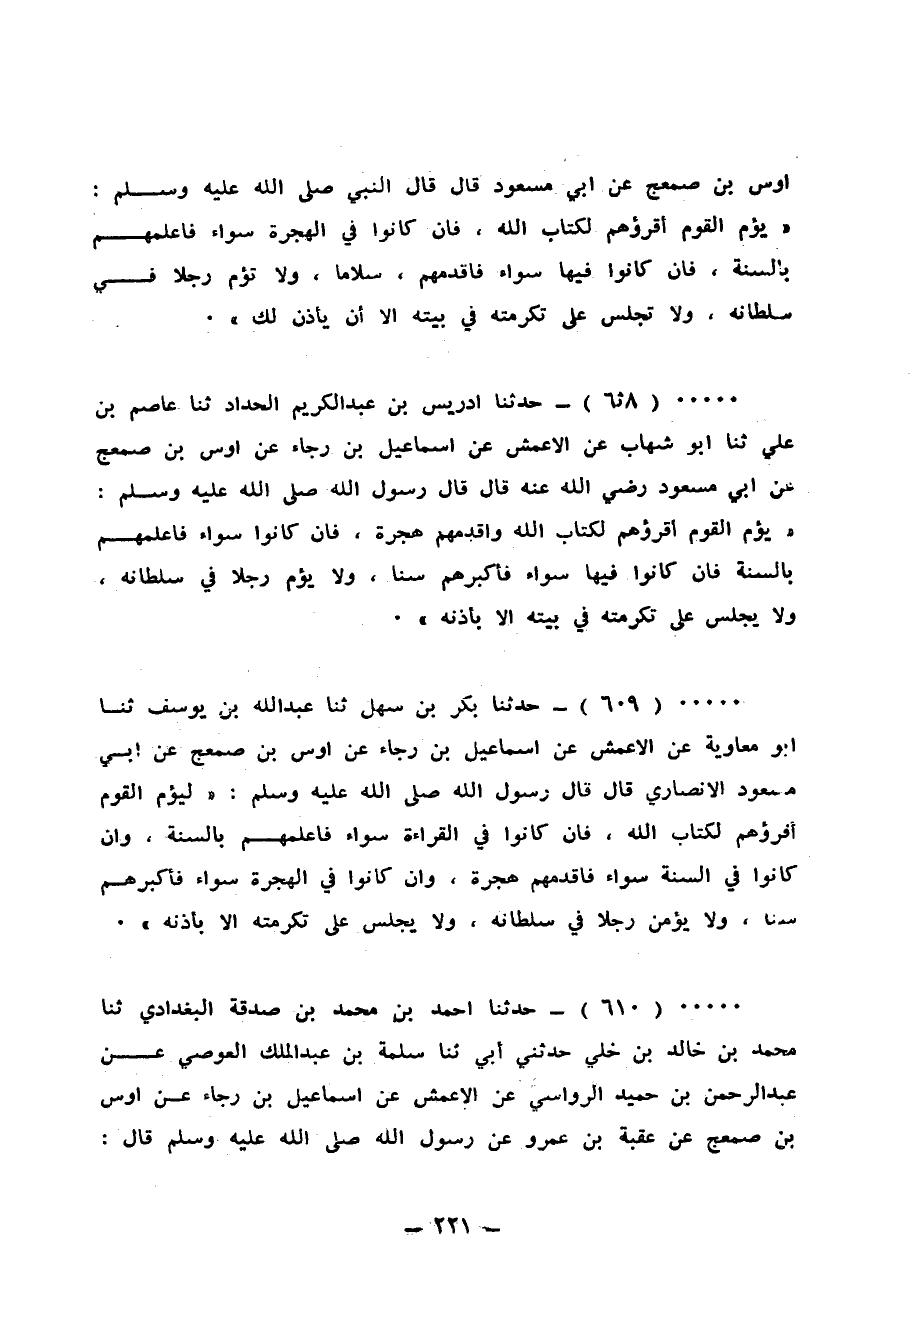 اوس بن صمعج عن ابي مسعود قال قال النبي صلى الله عليه وسـلم :
« يؤم القوم أقرؤهم لكتاب الله ، فان كانوا في الهجرة سواء فاعلمهـم
بالسنة ، فان كانوا فيها سواء فاقدمهم ، سلاما ، ولا تؤم رجلا فـي
سلطانه ، ولا تجلس على تكرمته في بيته الا أن يأذن لك » ٠
٠٠٠٠٠ ( ٦٠٨ ) ــ حدثنا ادريس بن عبدالكريم الحداد ثنا عاصم بن
علي ثنا ابو شهاب عن الاعمش عن اسماعيل بن رجاء عن اوس بن صمعج
عن ابي مسعود رضي الله عنه قال قال رسول الله صلى الله عليه وسـلم :
« يؤم القوم أقرؤهم لكتاب الله واقدمهم هجرة ، فان كانوا سواء فاعلمهـم
بالسنة فان كانوا فيها سواء فأكبرهم سنا ، ولا يؤم رجلا في سلطانه ،
ولا يجلس على تكرمته في بيته الا بأذنه » ٠
٠٠٠٠٠ ( ٦٠٩ ) ــ حدثنا بكر بن سهل ثنا عبدالله بن يوسف ثنـا
ابو معاوية عن الاعمش عن اسماعيل بن رجاء عن اوس بن صمعج عن ابـي
مسعود الانصاري قال قال رسول الله صلى الله عليه وسلم : « ليؤم القوم
أقرؤهم لكتاب الله ، فان كانوا في القراءة سواء فاعلمهـم بالسنة ، وان
كانوا في السنة سواء فاقدمهم هجرة ، وان كانوا في الهجرة سواء فأكبرهـم
سنا ، ولا يؤمن رجلا في سلطانه ، ولا يجلس على تكرمته الا بأذنه » ٠
٠٠٠٠٠ ( ٦١٠ ) ــ حدثنا احمد بن محمد بن صدقة البغدادي ثنا
محمد بن خالد بن خلي حدثني أبي ثنا سلمة بن عبدالملك العوصي عـن
عبدالرحمن بن حميد الرواسي عن الاعمش عن اسماعيل بن رجاء عـن اوس
بن صمعج عن عقبة بن عمرو عن رسول الله صلى الله عليه وسلم قال :
ــ ٢٢١ ــ